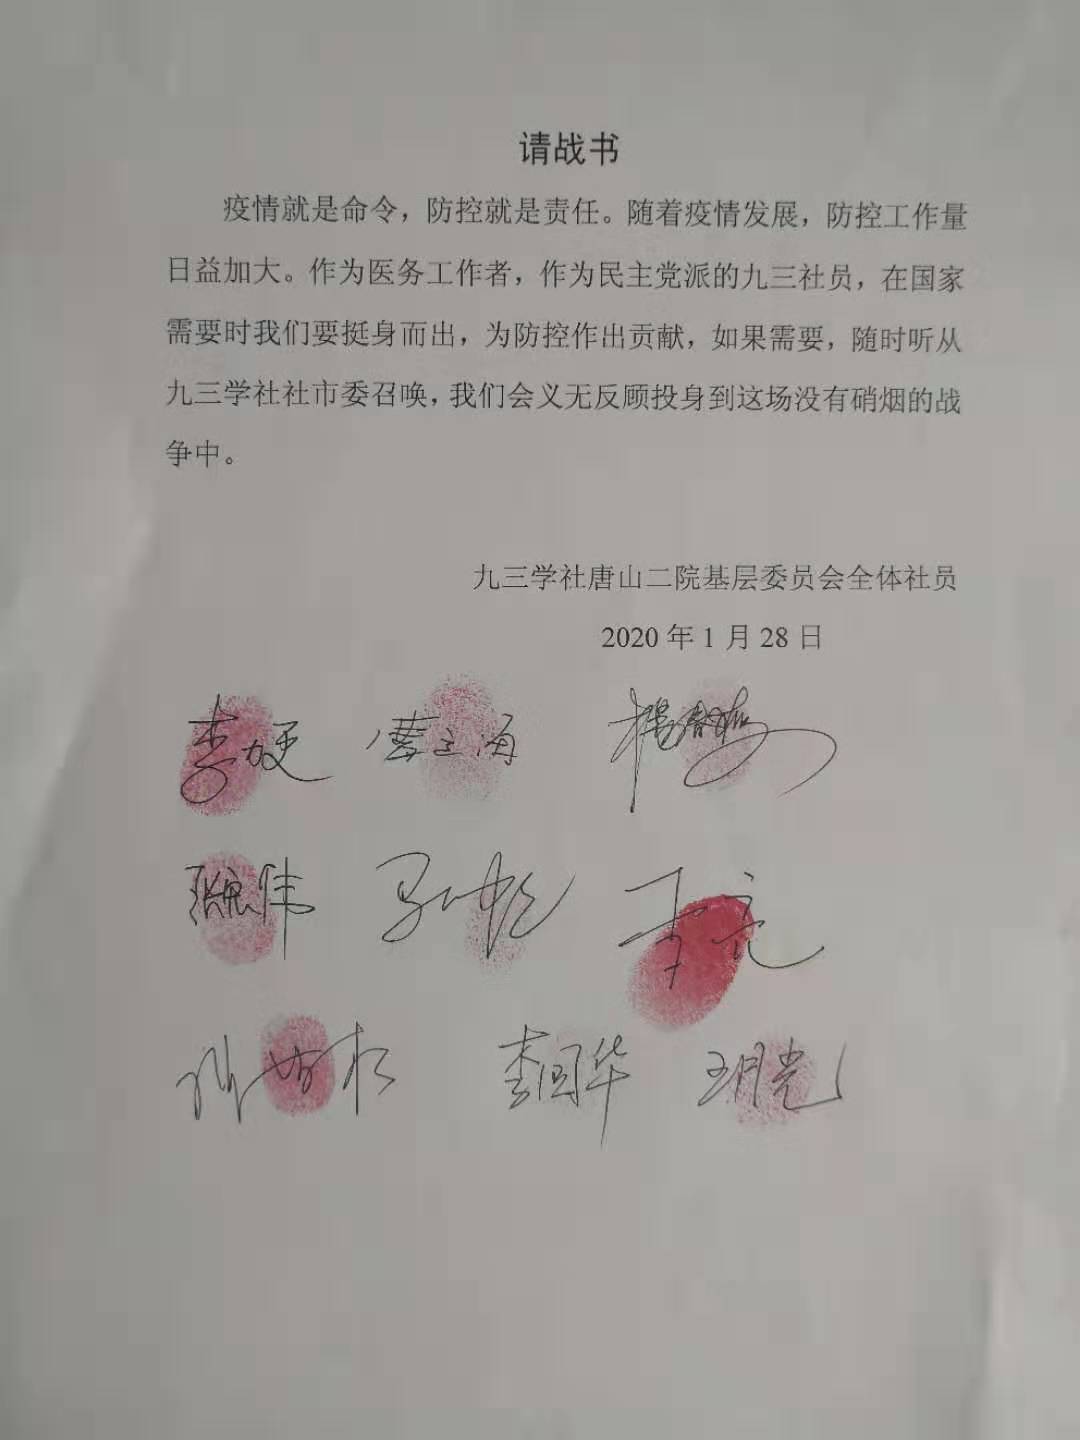 请战书
疫情就是命令，防控就是责任。随着疫情发展，防控工作量
日益加大。作为医务工作者，作为民主党派的九三社员，在国家
需要时我们要挺身而出，为防控作出贡献，如果需要，随时听从
九三学社社市委召唤，我们会义无反顾投身到这场没有硝烟的战
争中。
九三学社唐山二院基层委员会全体社员
2020 年 1 月 28 日
李亮
李国华 王月光